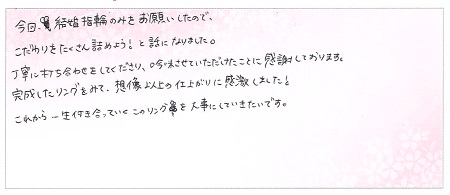 今回、結婚指輪のみをお願いしたので、
こだわりをたくさん詰めよう！と話になりました。
丁寧に打ち合わせをしてくださり、吟味させていただけたことに感謝しております。
完成したリングをみて、想像以上の仕上がりに感激しました！
これから一生付き合っていくこのリングを大事にしていきたいです。